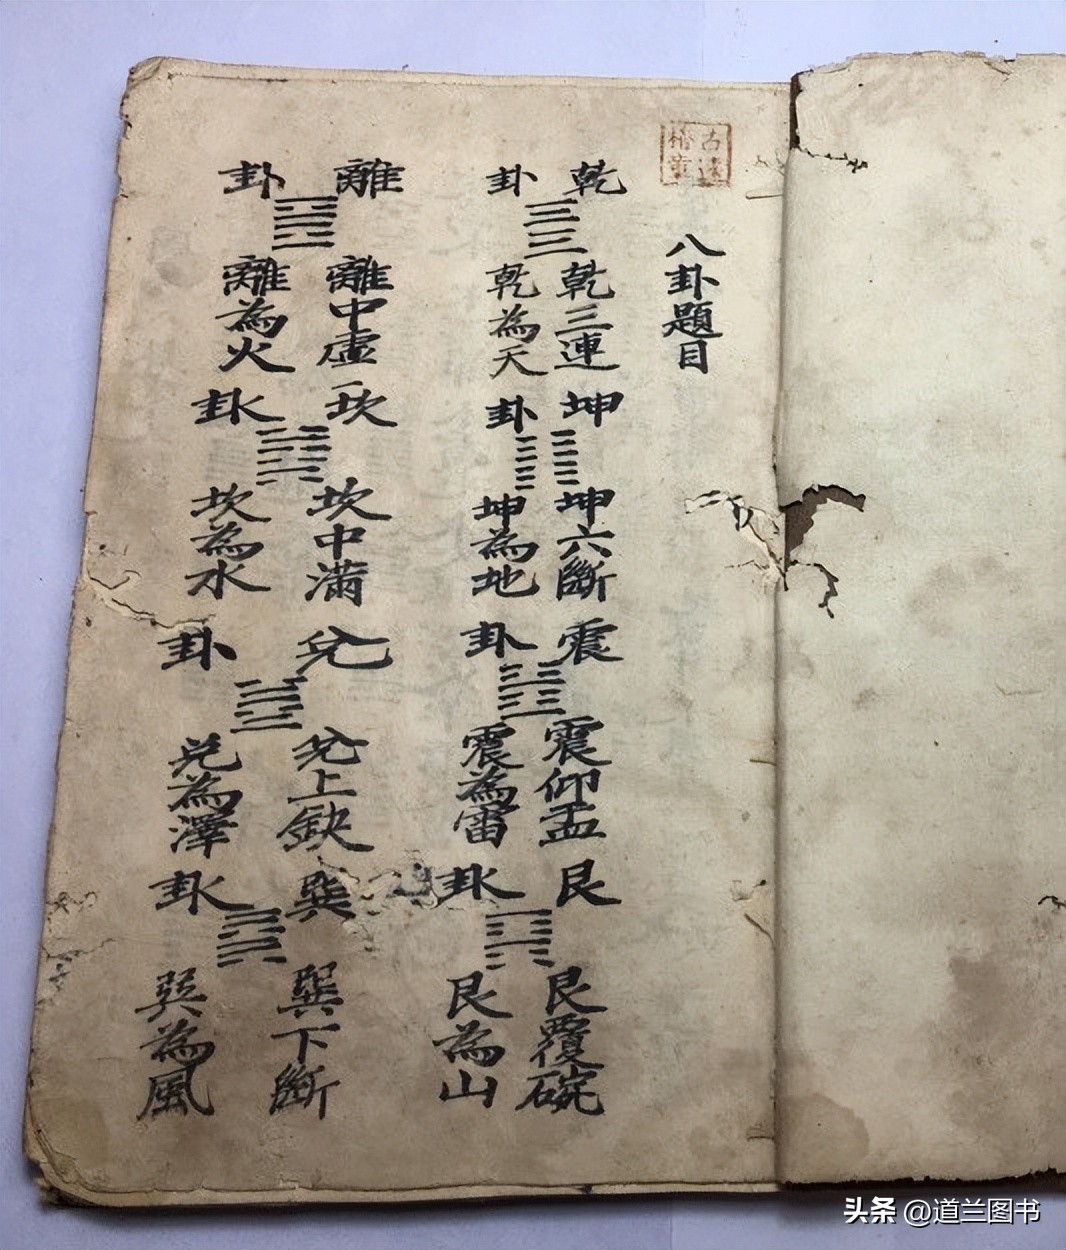 八卦題目
乾卦
乾三連
乾為天
坤卦
坤六斷
坤為地
震卦
震仰盂
震為雷
艮卦
艮覆碗
艮為山
離卦
離中虛
離為火
坎卦
坎中滿
坎為水
兌卦
兌上缺
兌為澤
巽卦
巽下斷
巽為風
头条 @道兰图书